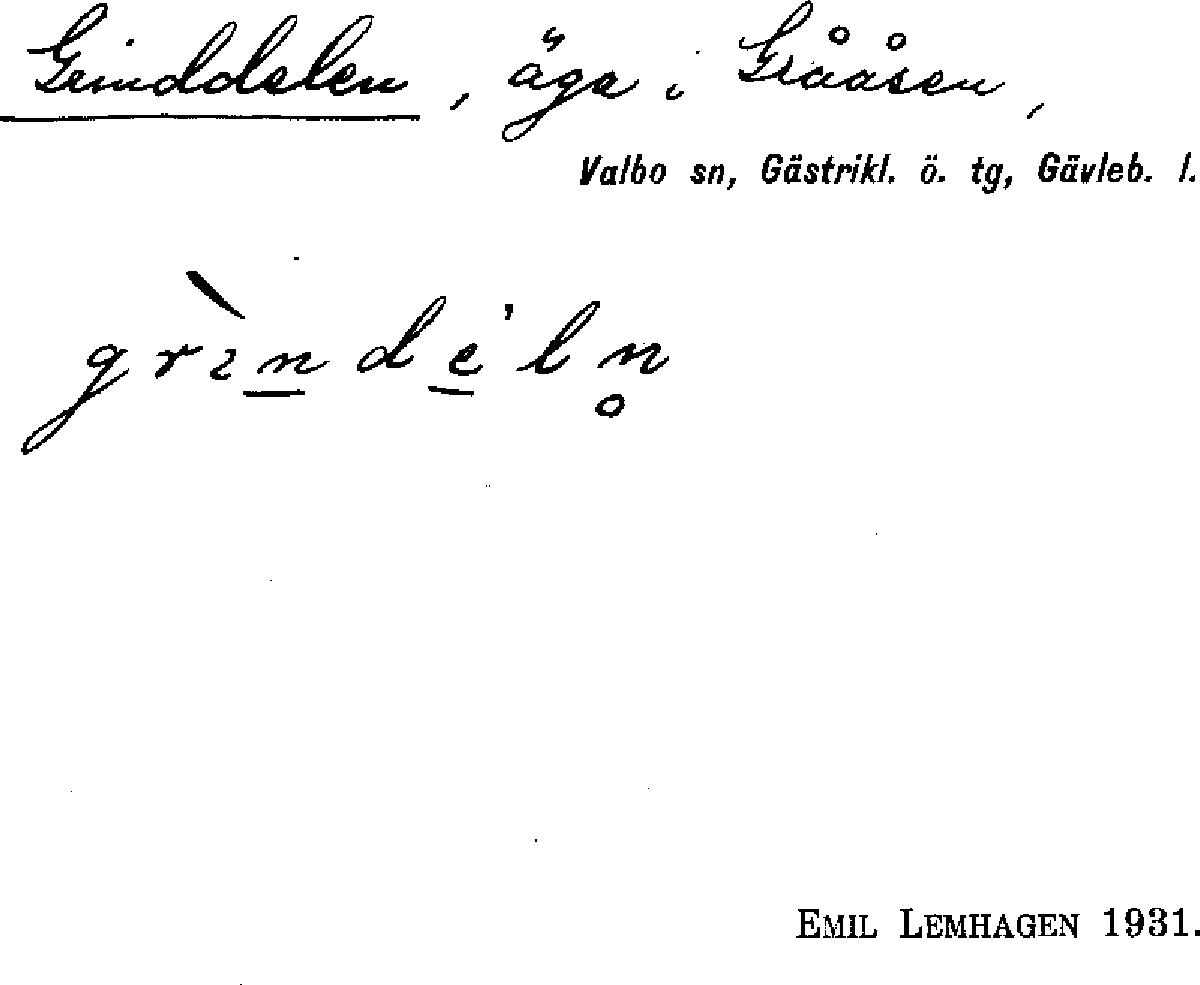 Grinddelen, äga i Grååsen,
Valbo sn, Gästrikl. ö. tg, Gävleb. l.
grìn̲de̲'ln̥
EMIL LEMHAGEN 1931.